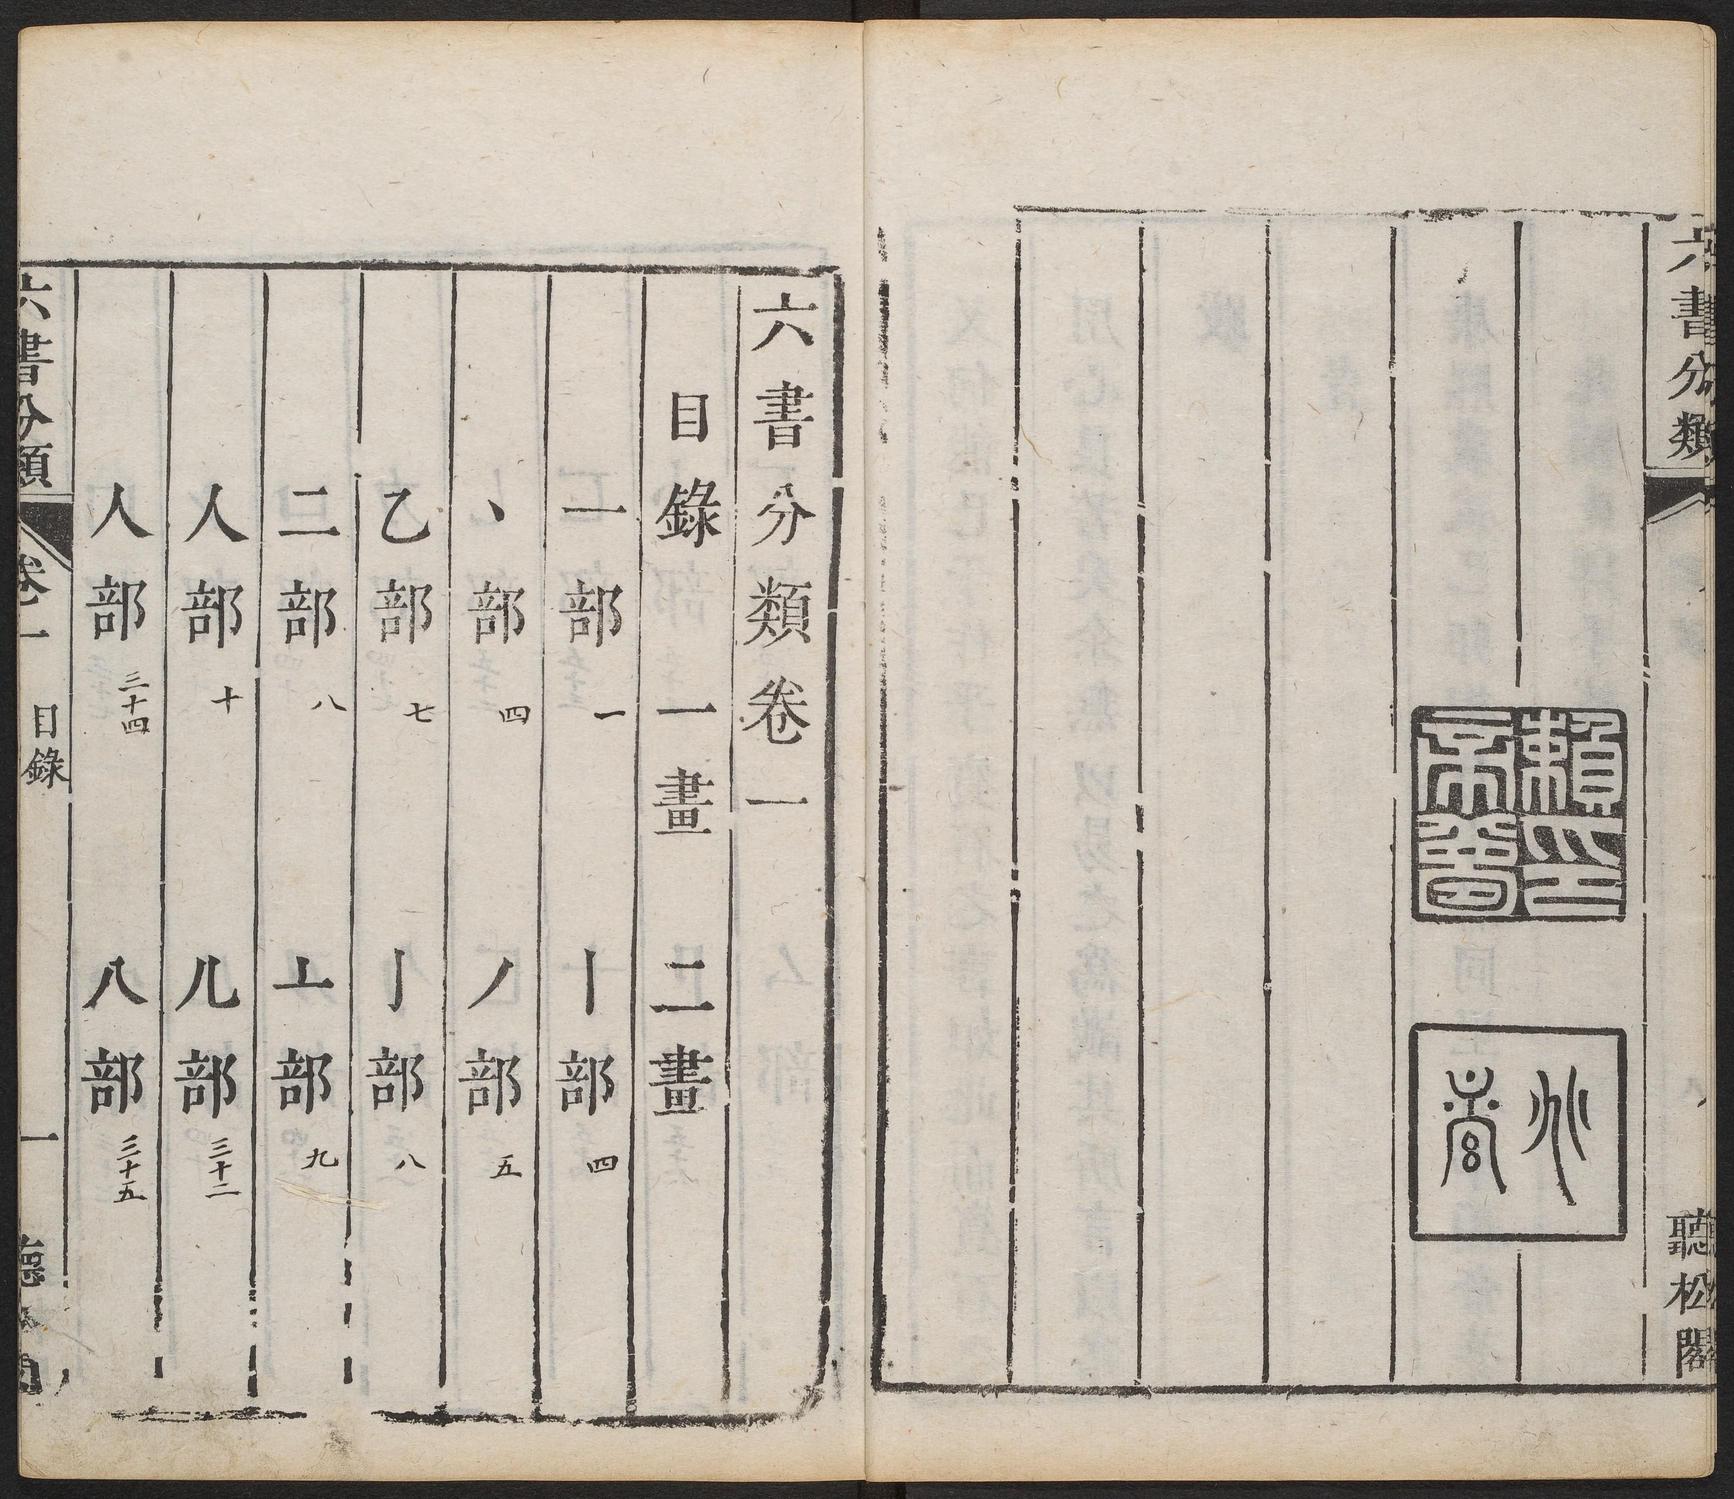 六書分類
聽松閣
六書分類卷一
目錄 一畫 二畫
一部 一 丨部 四
丶部 四 丿部 五
乙部 七 亅部 八
二部 八 亠部 九
人部 十 儿部 三十二
人部 三十四 八部 三十五
六書分類 卷一 目錄 一